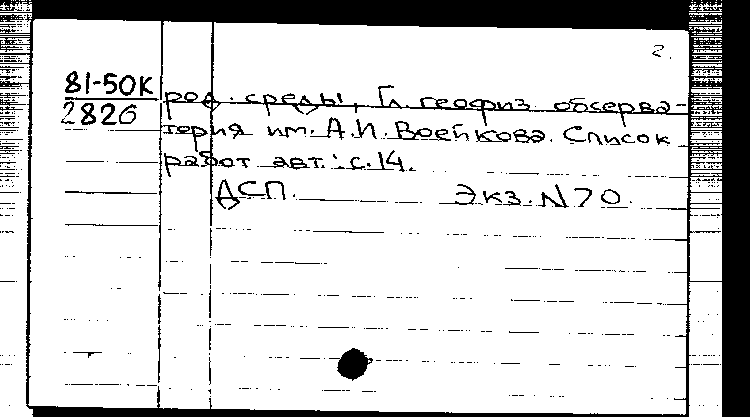 2.
81-50К
2826
род. среды, Гл. геофиз. обсерва-
тория им. А.И. Воейкова. Список
работ авт.: с.14.
ДСП. Экз. N70.